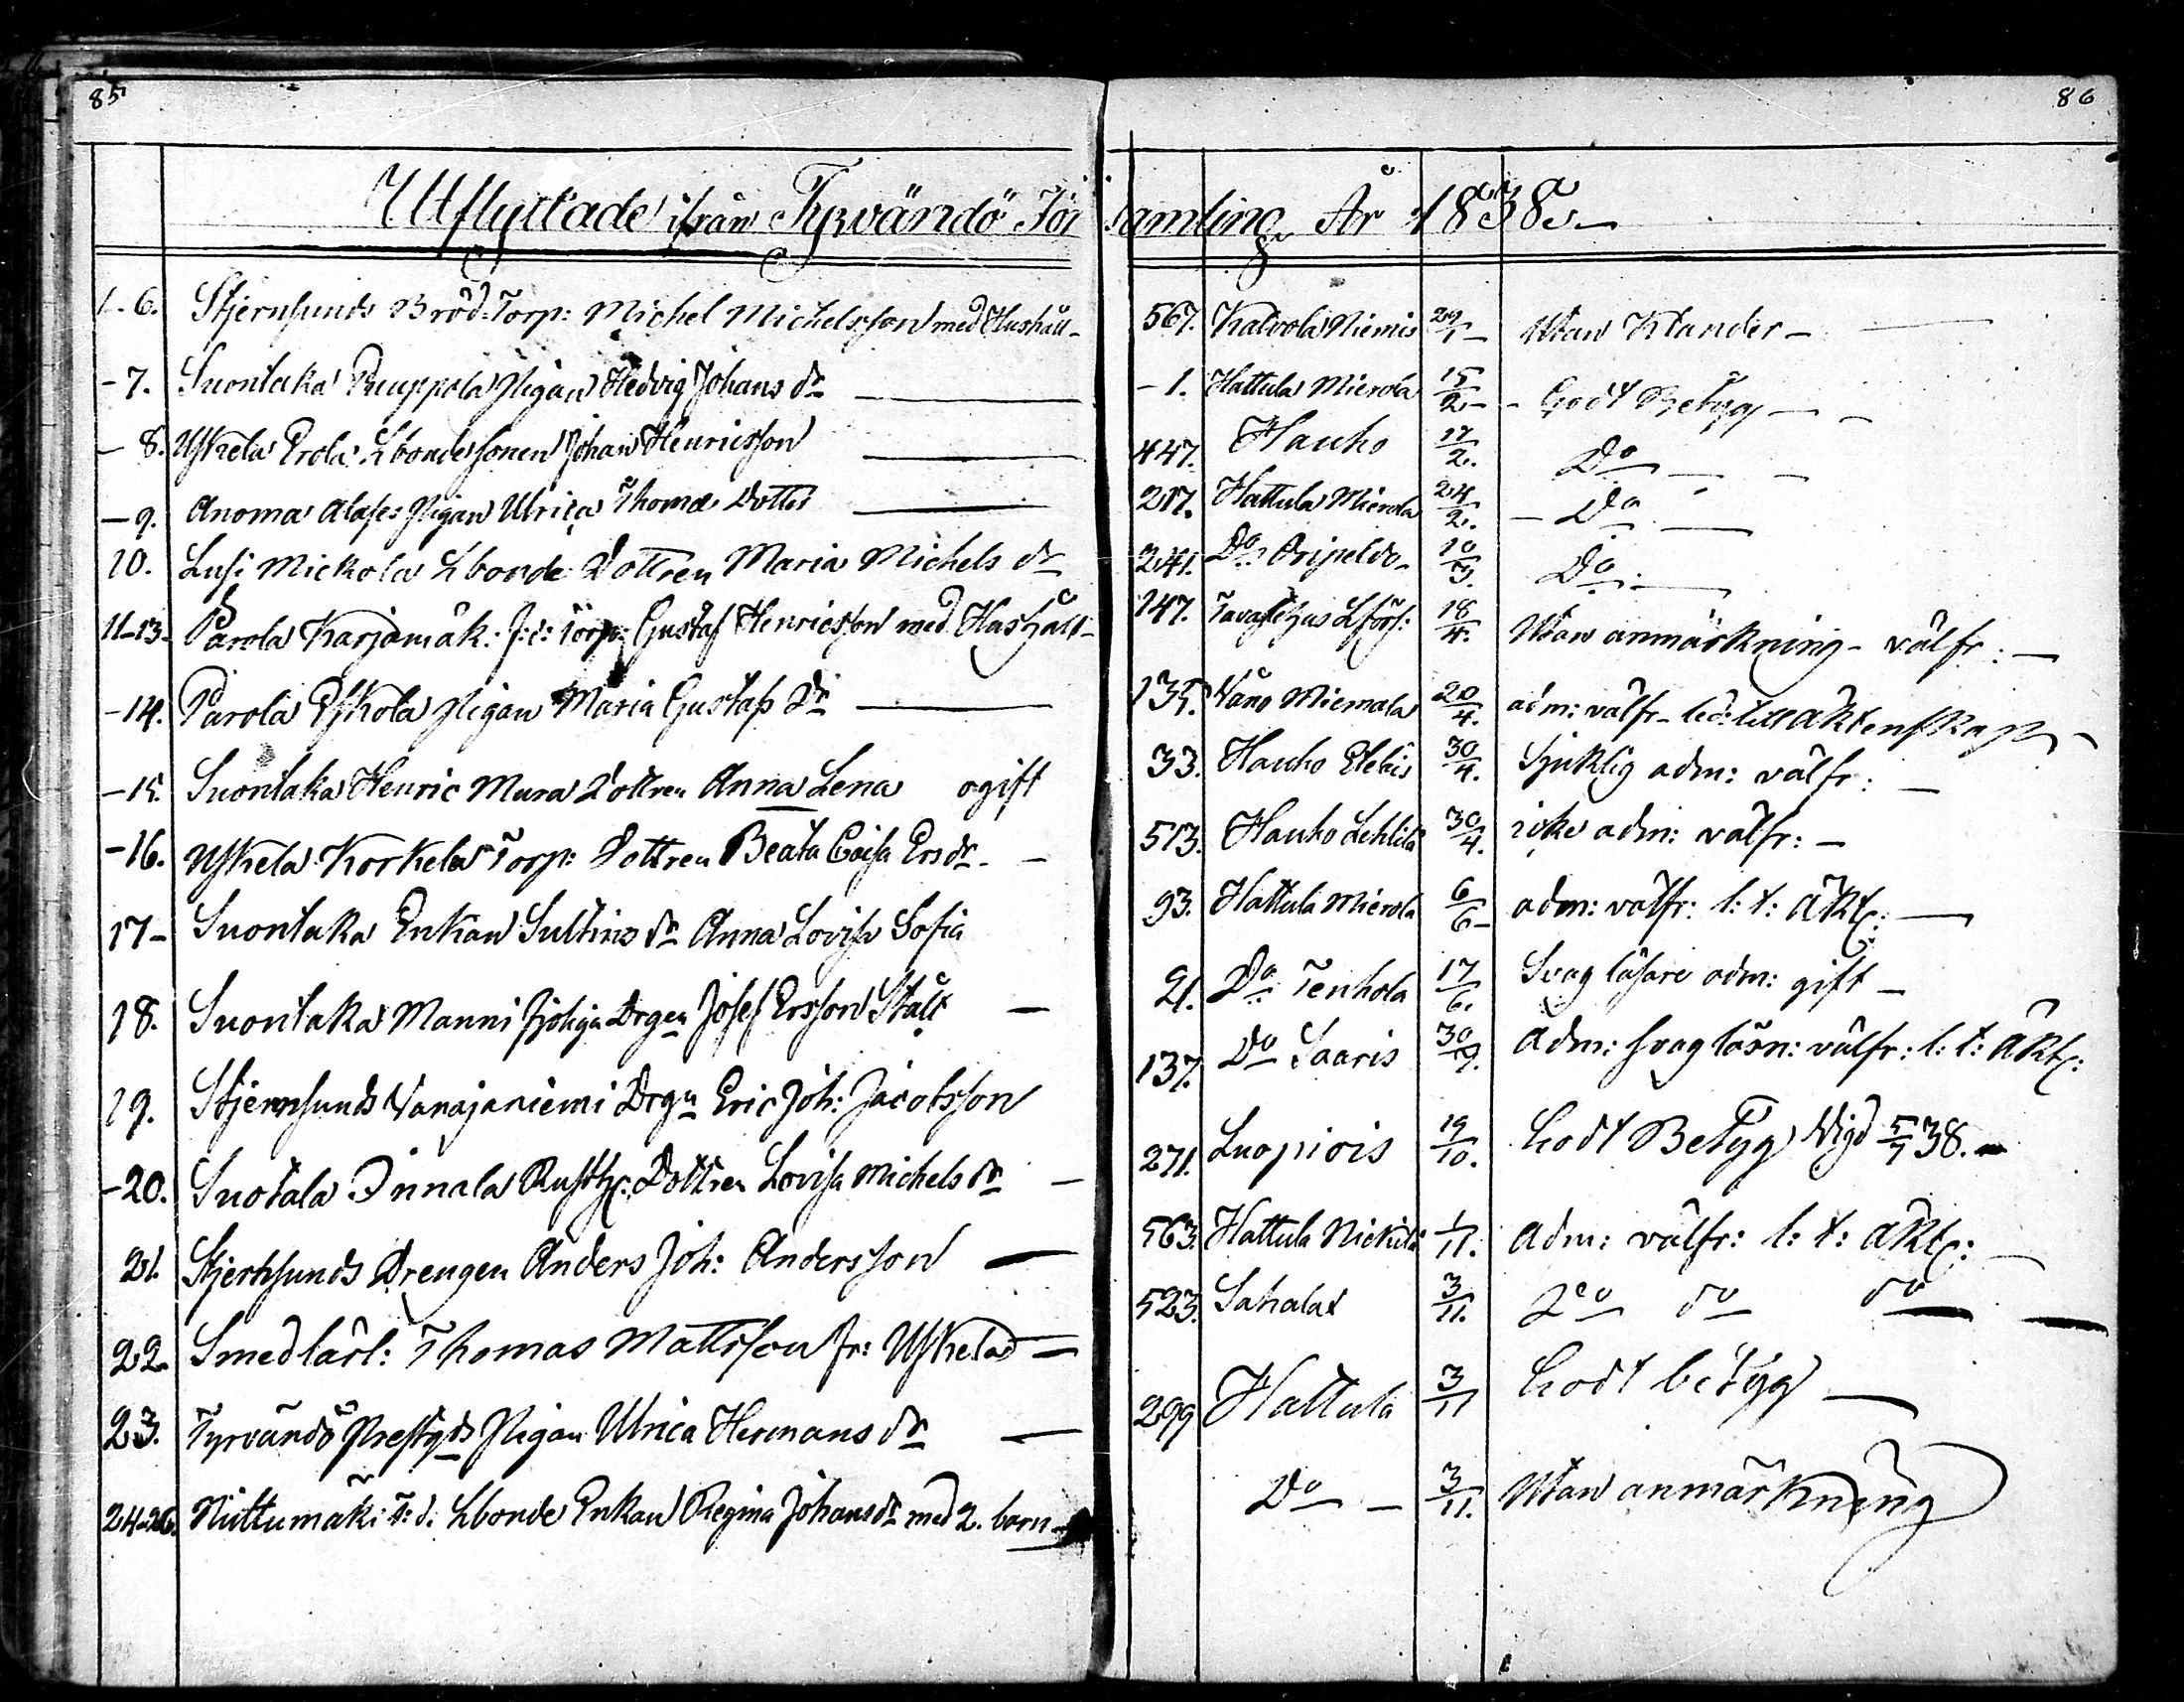 85
86
Utflyttade ifrån Tyrvändö Församling År 1838.
1-6. Stjernsunds Bröd. Torp: Michel Michelsson med Hushåll - 567. Kalvola Niemis 29/1 - Utan Klander -
- 7. Suontaka Ruuppola Pigan Hedvig Johans dr - 1. Hattula Mierola 15/2 - Godt Betyg -
- 8. Uskela Erola Lbondesonen Johan Henricsson 447. Hauho 17/2. Do
- 9. Anoma Alase: Pigan Ulrica Thomæ Dotter 217. Hattula Mierola 24/2. - Do
10. Lusi Mickola Lbonde Dottren Maria Michels dr 241. Do 10/3. Do
11-13- Parola Karjamäk: f: d: Torp: Gustaf Henricsson med Hushåll - 147. Tavastehus Lförs: 18/4. Utan anmärkning - välfr: -
- 14. Parola Eskola Pigan Maria Gustafs Dr 135. Vånå Miemala 20/4. adm: välfr - led: till Äktenskap -
- 15. Suontaka Henric Mura Dottren Anna Lena ogift 33. Hauho Eteläis 30/4. Sjuklig adm: välfr: -
- 16. Uskela Korkela Torp: Dottren Beata Caisa Ersdr - 513. Hauho Lehlilä 30/4. icke adm: välfr: -
17- Suontaka Enkan Sultins dr Anna Lovisa Sofia 93. Hattula Mierola 6/6 - adm: välfr: l: t: Äkts:
18. Suontaka Manni Drgen Josef Ersson Stålt - 21. Do Tenhola 17/6. Svag läsare adm: gift -
19. Stjernsunds Vanajaniemi Drgn Eric Joh: Jacobsson 137. Do Saaris 30/9. Adm: svag läsn: välfr: l: t: Äkts:
- 20. Suotala Innala Rusth: Dottren Lovisa Michels dr - 271. Luopiois 19/10. Godt Betyg Vigd 5/7 38. -
21. Stjernsunds Drengen Anders Joh: Andersson - 563. Hattula Nickilä 1/11. Adm: välfr: l: t: Äkts: -
22. Smedlärl: Thomas Mattsson fr: Uskela - 523. Sahalax 3/11. Do do do
23. Tyrvändö Prestgds Pigan Ulrica Hermans dr - 299 Hattula 3/11 Godt betyg -
24-26. Niittumäki f: d. Lbonde Enkan Regina Johansdr med 2. barn - Do - 3/11. Utan anmärkning